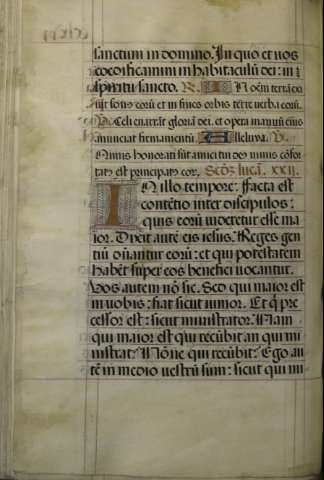 sanctum in domino. In quo et vos
coedificamini in habitaculũ dei: in
spiritu sancto. R. In oẽm terrã ex
iuit son⁹ eorũ et in fines orbis terre verba eorũ.
V. Celi enarrãt gloriã dei. et opera manuũ eius
anunciat firmamentũ. Alleluya. V.
Nimis honorati sũt amici tui de⁹ nimis cõfor
tat⁹ est principat⁹ eor. Scd̃z lucã. xxij.
IN illo tempore: Facta est
cõtẽtio inter discipulos:
quis eorũ videretur esse ma
ior. Dixit autẽ eis iesus. Reges gen
tiũ dñantur eorũ: et qui potestatem
habẽt super eos benefici vocantur.
Vos autem nõ sic. Sed qui maior est
in vobis: fiat sicut iunior. Et q̃ pre
cessor est: sicut ministrator. Nam
quis maior est q̃ui recũbit an qui mi
nistrat: Nõne qui recũbit: Ego au
tẽ in medio vestrũ sum: sicut qui mi